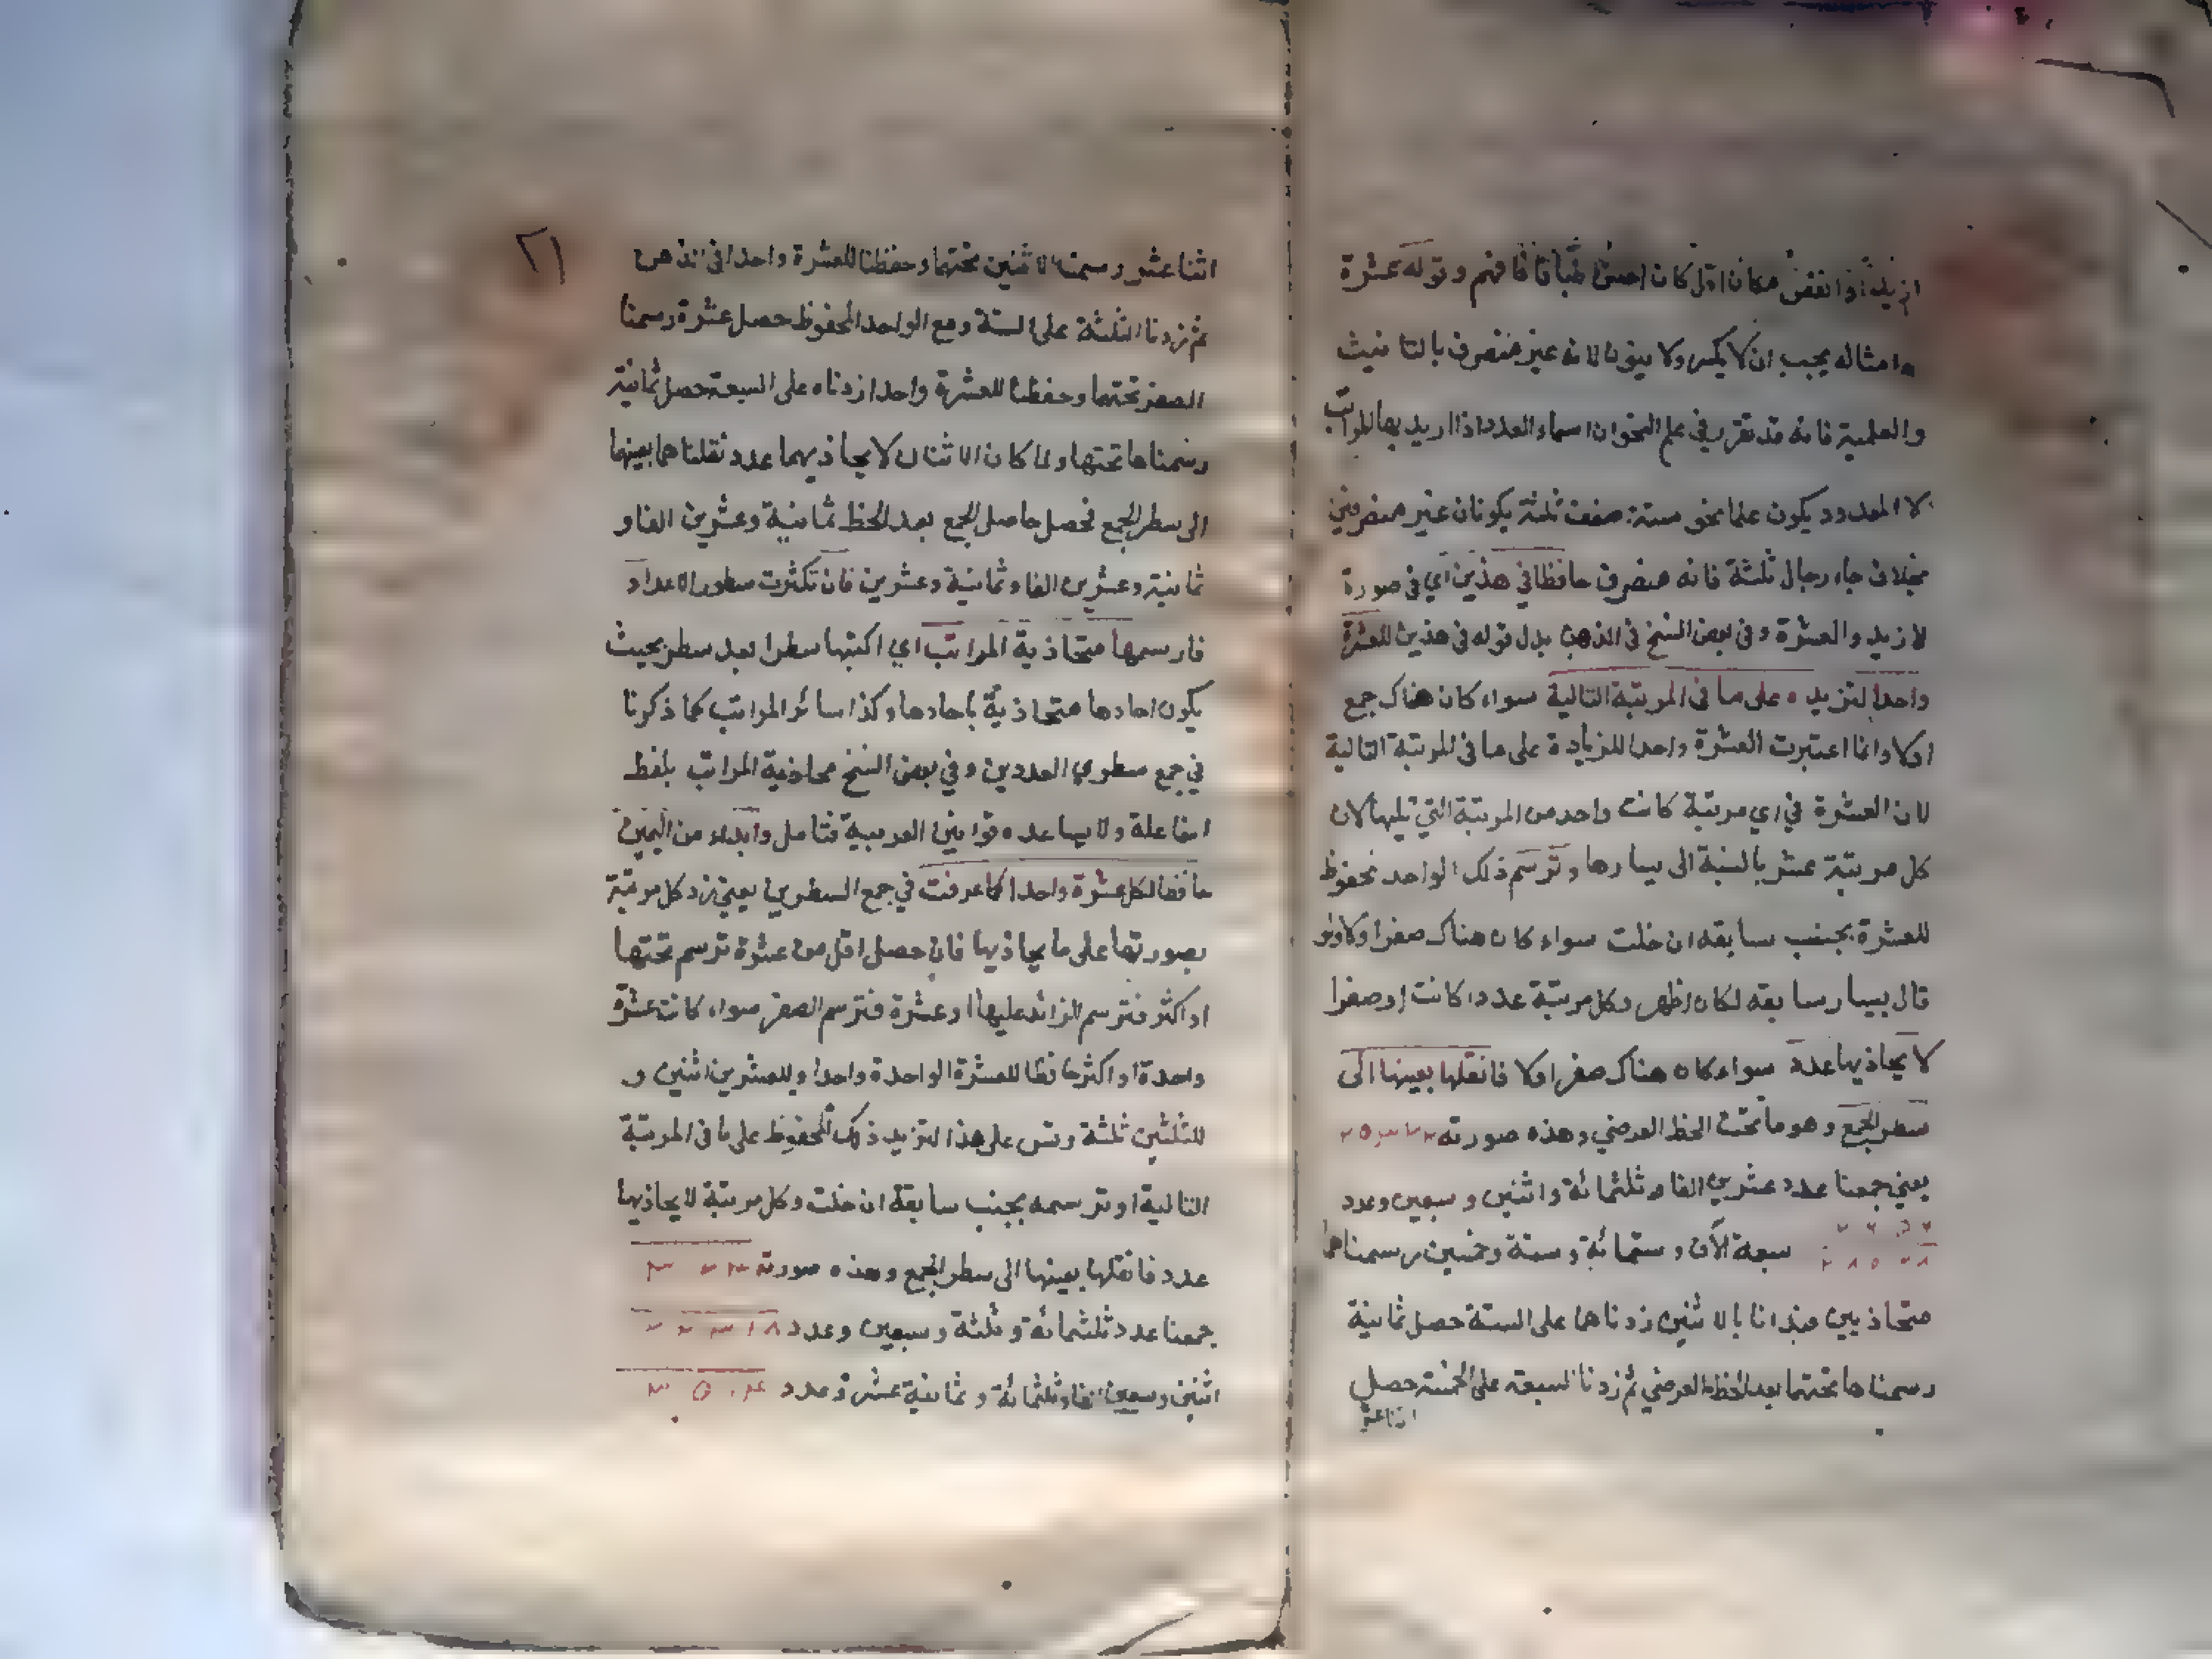 ازيد او انقص مكان اقل كان احسن طباقا فافهم وقوله عشرة
وامثاله يجب ان لا يكسر ولا ينون لانه غير منصرف بالتانيث
والعلمية فانه قد تقرر في علم النحو ان اسماء العدد اذا اريد بها المراتب
لا المعدود يكون علما نحو ستة ضعف ثلثة يكونان غير منصرفين
بخلاف جاء رجال ثلثة فانه منصرف حافظا في هذين اي في صورة
لازيد والعشرة وفي بعض النسخ في الذهن بدل قوله في هذين للعشرة
واحدا لتزيده على ما في المرتبة التالية سواء كان هناك جمع
اولا وانما اعتبرت العشرة واحدا للزيادة على ما في المرتبة التالية
لان العشرة في اي مرتبة كانت واحد من المرتبة التي تليها لان
كل مرتبة عشر بالنسبة الى يسارها وترسم ذلك الواحد محفوظ
للعشرة بجنب سابقه ان خلت سواء كان هناك صفرا ولا ولو
قال بيسار سابقه لكان اظهر وكل مرتبة عددا كانت او صفرا
لا يحاذيها عدد سواء كان هناك صفرا ولا فانقلها بعينها الى
سطر الجمع وهو ما تحت الخط العرضي وهذه صورته
يعني جمعنا عدد عشرين الفا وثلثمائة واثنين وسبعين وعدد
سبعة آلاف وستمائة وستة وخمسين رسمناهما
متحاذيين فبدانا بالاثنين زدناها على الستة حصل ثمانية
رسمناها تحتهما بعد الخط العرضي ثم زدنا السبعة على الخمسة حصل
اثنا عشر
٢١
اثنا عشر رسمنا الاثنين تحتهما وحفظنا للعشرة واحدا في الذهن
ثم زدنا الثلثة على الستة ومع الواحد المحفوظ حصل عشرة رسمنا
الصفر تحتهما وحفظنا للعشرة واحدا زدناه على السبعة حصل ثمانية
رسمناها تحتها ولما كان الاثنان لا يحاذيهما عدد نقلناهما بعينهما
الى سطر الجمع فحصل حاصل الجمع بعد الخط ثمانية وعشرين الفا و
ثمانية وعشرين الفا وثمانية وعشرين فان تكثرت سطور الاعداد
فارسمها متحاذية المراتب اي اكتبها سطرا بعد سطر بحيث
يكون احادها متحاذية باحادها وكذا سائر المراتب كما ذكرنا
في جمع سطري العددين وفي بعض النسخ محاذية المراتب بلفظ
المفاعلة ولا يساعده قوانين العربية فتامل وابدا من اليمين
حافظا لكل عشرة واحدا كما عرفت في جمع السطرين يعني زد كل مرتبة
بصورتها على ما يحاذيها فان حصل اقل من عشرة ترسم تحتها
او اكثر فترسم الزائد عليها او عشرة فترسم الصفر سواء كانت عشرة
واحدة او اكثر حافظا للعشرة الواحدة واحدا وللعشرين اثنين و
للثلثين ثلثة وقس على هذا لتزيد ذلك المحفوظ على ما في المرتبة
التالية او ترسمه بجنب سابقة ان خلت وكل مرتبة لا يحاذيها
عدد فانقلها بعينها الى سطر الجمع وهذه صورته
جمعنا عدد ثلثمائة وثلثة وسبعين وعدد
اثنين وسبعين الفا وثلثمائة وثمانية عشر وعدد